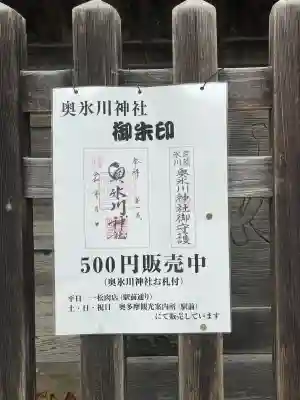 奥氷川神社
御朱印
奉拝
奥氷川神社
氷川
奥氷川神社御守護
500円販売中
(奥氷川神社お札付)
平日 一松肉店(駅前通り)
土・日・祝日 奥多摩観光案内所(駅前)
にて販売しています